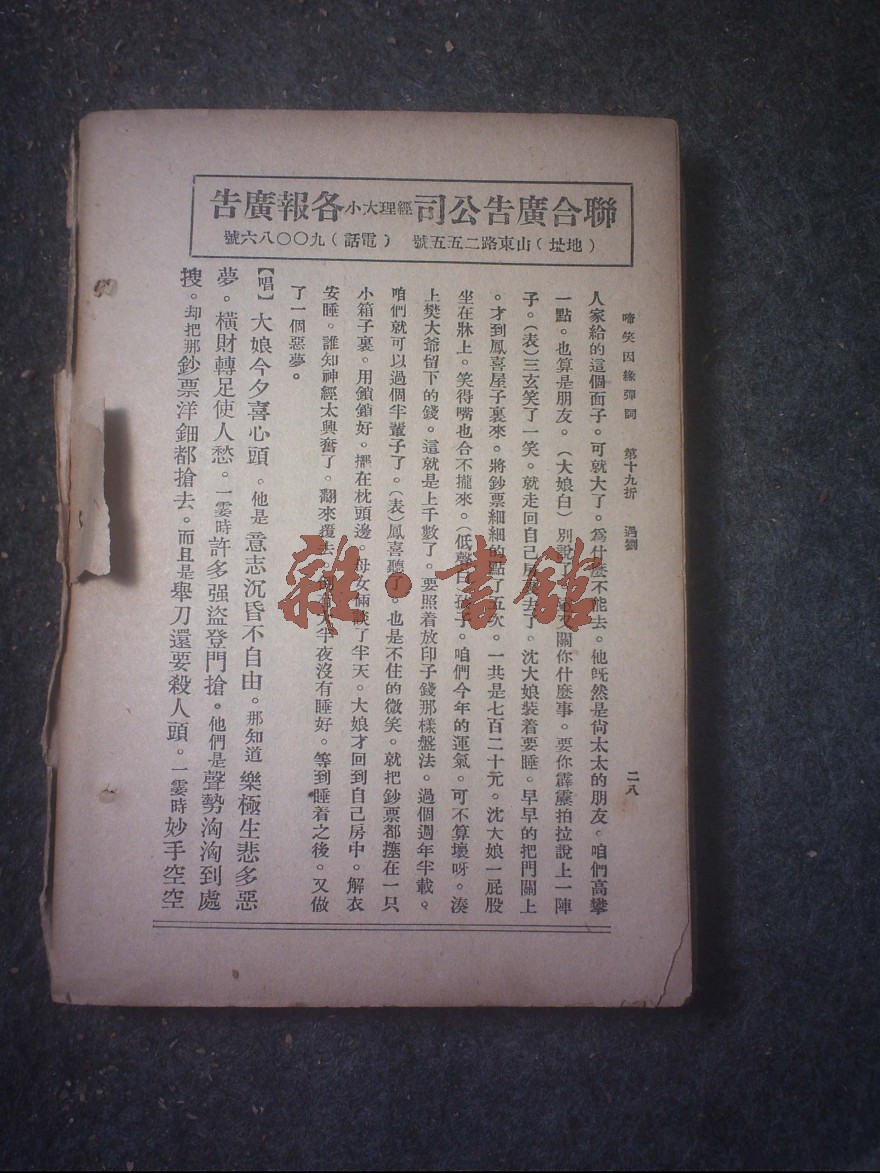 聯合廣告公司經理大小各報廣告
（地址）山東路二五五號　（電話）九〇〇八六號
啼笑因緣彈詞　第十九折　遇劉　二八
人家給的這個面子。可就大了。爲什麼不能去。他旣然是尙太太的朋友。咱們高攀
一點。也算是朋友。（大娘白）別說了。關你什麼事。要你霹靂拍拉說上一陣
子。（表）三玄笑了一笑。就走回自己房裏去了。沈大娘裝着要睡。早早的把門關上
。才到鳳喜屋子裏來。將鈔票細細的點了五次。一共是七百二十元。沈大娘一屁股
坐在牀上。笑得嘴也合不攏來。（低聲白）孩子。咱們今年的運氣。可不算壞呀。湊
上樊大爺留下的錢。這就是上千數了。要照着放印子錢那樣盤法。過個週年半載。
咱們就可以過個半輩子了。（表）鳳喜聽了。也是不住的微笑。就把鈔票都塞在一只
小箱子裏。用鎖鎖好。擺在枕頭邊。母女倆談了半天。大娘才回到自己房中。解衣
安睡。誰知神經太興奮了。翻來覆去。大半夜沒有睡好。等到睡着之後。又做
了一個惡夢。
【唱】大娘今夕喜心頭。他是意志沉昏不自由。那知道樂極生悲多惡
夢。橫財轉足使人愁。一霎時許多强盜登門搶。他們是聲勢洶洶到處
搜。却把那鈔票洋鈿都搶去。而且是舉刀還要殺人頭。一霎時妙手空空
雜·書館